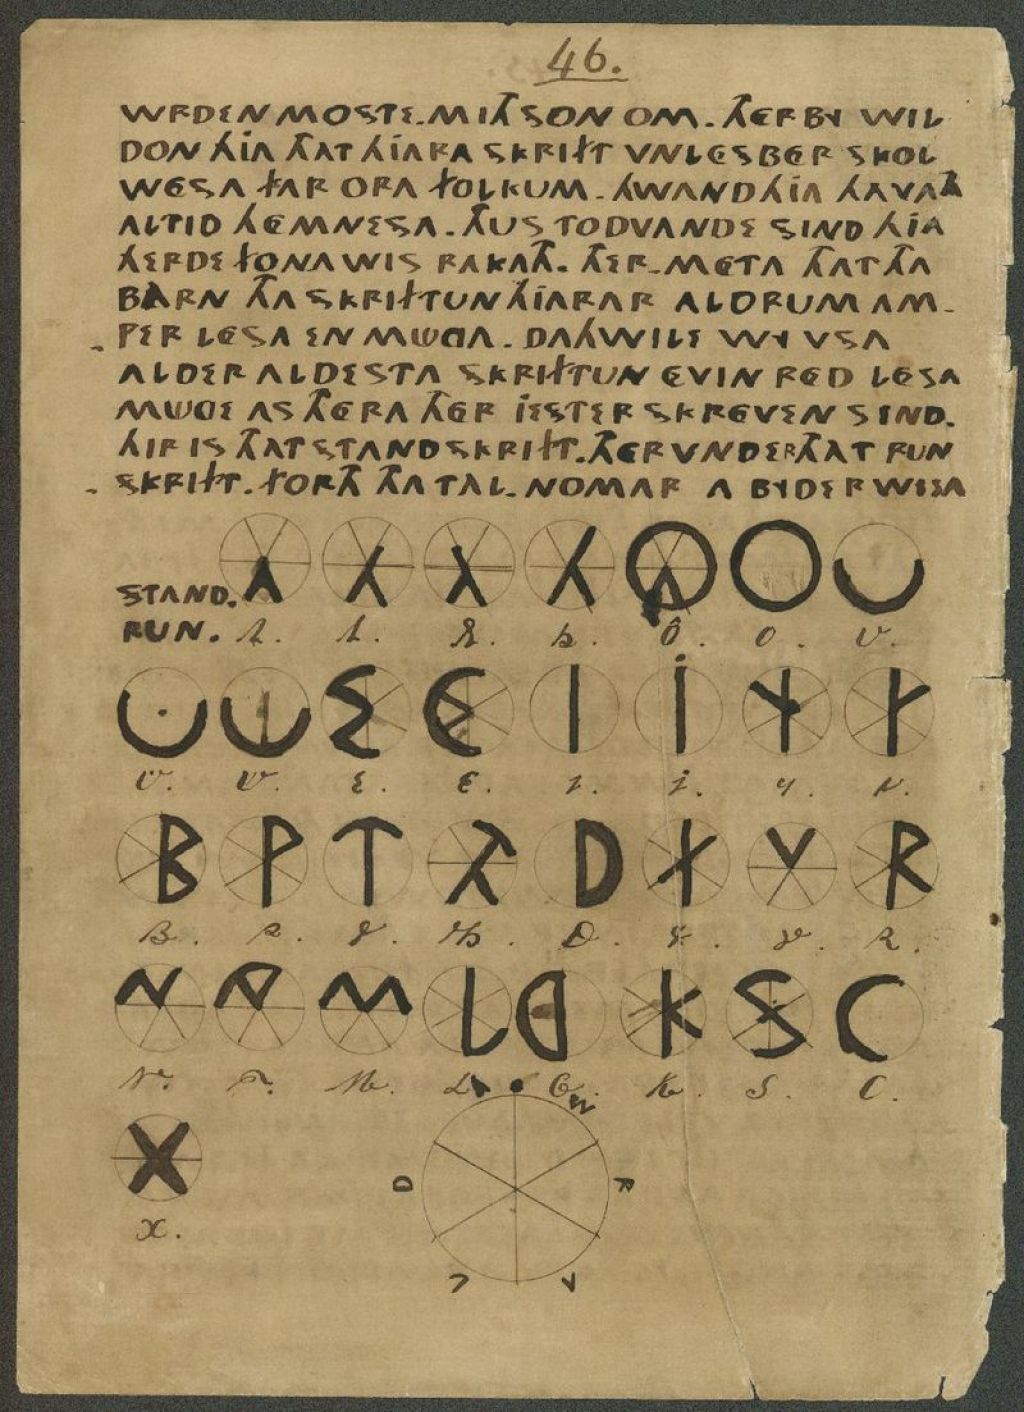 46.
WRDEN MOSTE. MITH SON OM. THERBY WIL
DON HIA THAT HIARA SKRIFT VNLESBER SKOL
WESA FAR ORA FOLKUM. HWAND HIA HAVATH
ALTID HEMNESA. THUS TODVANDE SIND HIA
HERDE FONA WIS RAKATH. THER-META THAT THA
BARN THA SKRIFTUN HIARAR ALDRUM AM-
PER LESA EN MÛGA. DAHWILE WY VSA
ALDER ALDESTA SKRIFTUN EVIN RED LESA
MÛGE AS THERA THER JESTER SKREVEN SIND.
HIR IS THAT STANDSKRIFT. THERVNDER THAT RUN
SKRIFT. FORTH THA TAL-NOMAR A BYDER WISA
STAND. A A Ä A Ô O U
RUN. O. V.
U U E E I J Y
E. E. I. J. Y.
B P T TH D F V R
B. P. T. Th. D. F. V. R.
N M L G K S C
N. M. L. G. K. S. C.
X
x.
D R